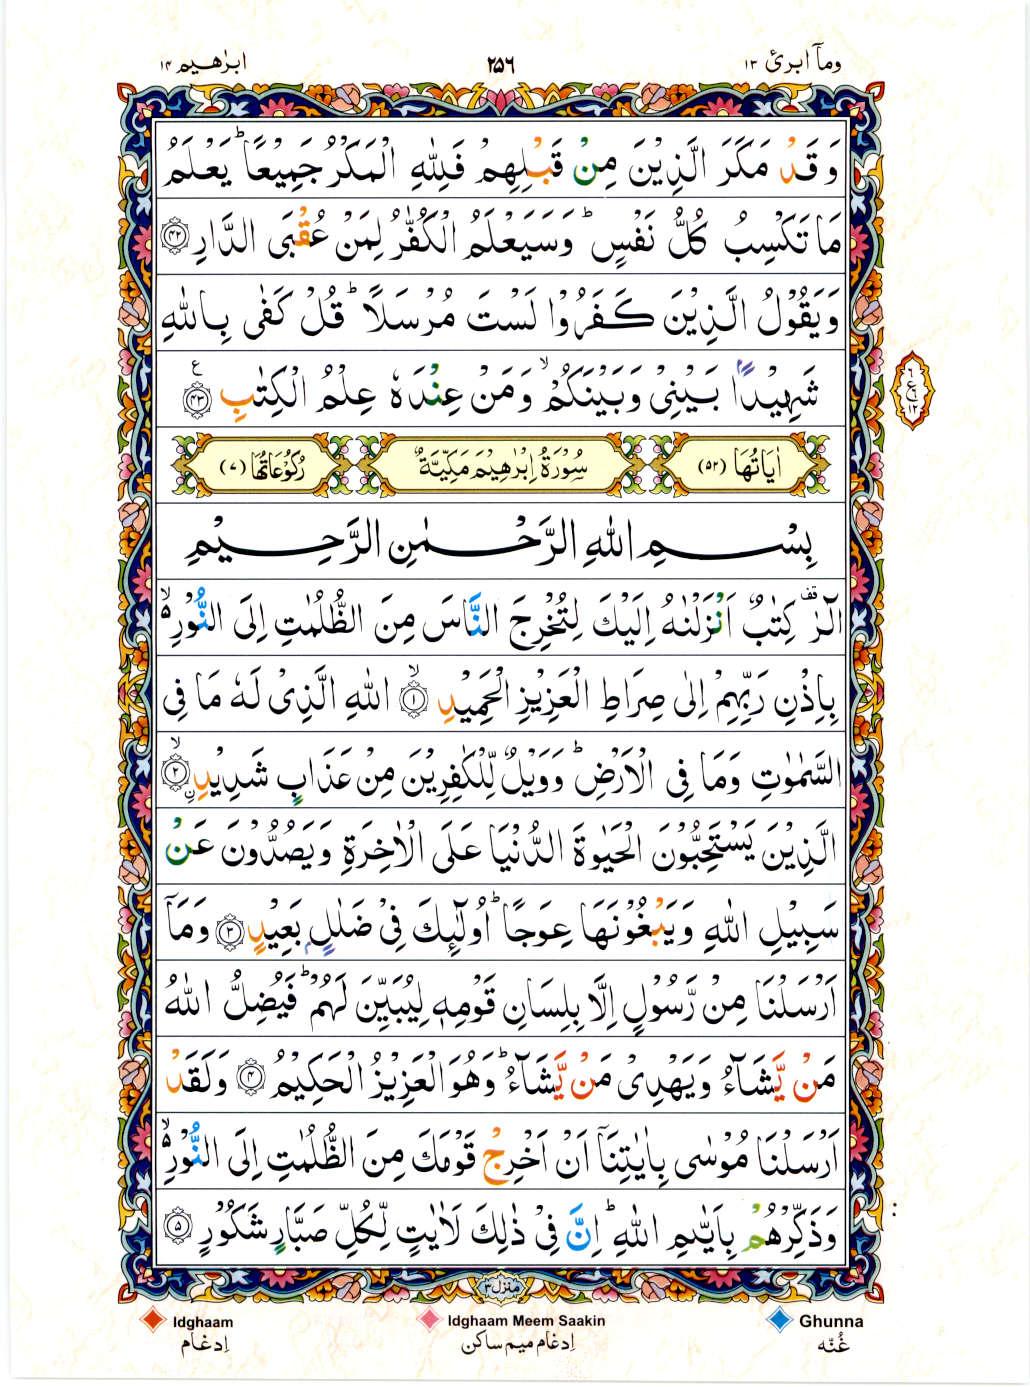 ابرٰهیم ۱۴
۲۵۶
ومآ ابرئ ۱۳
وَ قَدْ مَكَرَ الَّذِيْنَ مِنْ قَبْلِهِمْ فَلِلّٰهِ الْمَكْرُ جَمِيْعًا ؕ يَعْلَمُ
مَا تَكْسِبُ كُلُّ نَفْسٍ ؕ وَسَيَعْلَمُ الْكُفّٰرُ لِمَنْ عُقْبَى الدَّارِ ۝۴۲
وَيَقُوْلُ الَّذِيْنَ كَفَرُوْا لَسْتَ مُرْسَلًا ؕ قُلْ كَفٰى بِاللّٰهِ
شَهِيْدًۢا بَيْنِيْ وَبَيْنَكُمْ ۙ وَمَنْ عِنْدَهٗ عِلْمُ الْكِتٰبِ ۝۴۳
ع
۶
ع
۱۲
اٰيَاتُهَا (۵۲)
سُوْرَةُ اِبْرٰهِيْمَ مَكِّيَّةٌ
رُكُوْعَاتُهَا (۷)
بِسْمِ اللّٰهِ الرَّحْمٰنِ الرَّحِيْمِ
الٓرٰ ۫ كِتٰبٌ اَنْزَلْنٰهُ اِلَيْكَ لِتُخْرِجَ النَّاسَ مِنَ الظُّلُمٰتِ اِلَى النُّوْرِ ۙ۬
بِاِذْنِ رَبِّهِمْ اِلٰى صِرَاطِ الْعَزِيْزِ الْحَمِيْدِ ۙ۝۱ اللّٰهِ الَّذِيْ لَهٗ مَا فِى
السَّمٰوٰتِ وَمَا فِى الْاَرْضِ ؕ وَوَيْلٌ لِّلْكٰفِرِيْنَ مِنْ عَذَابٍ شَدِيْدِ ۙ۝۲
ِ۟الَّذِيْنَ يَسْتَحِبُّوْنَ الْحَيٰوةَ الدُّنْيَا عَلَى الْاٰخِرَةِ وَيَصُدُّوْنَ عَنْ
سَبِيْلِ اللّٰهِ وَيَبْغُوْنَهَا عِوَجًا ؕ اُولٰٓئِكَ فِيْ ضَلٰلٍۭ بَعِيْدٍ ۝۳ وَمَآ
اَرْسَلْنَا مِنْ رَّسُوْلٍ اِلَّا بِلِسَانِ قَوْمِهٖ لِيُبَيِّنَ لَهُمْ ؕ فَيُضِلُّ اللّٰهُ
مَنْ يَّشَآءُ وَيَهْدِيْ مَنْ يَّشَآءُ ؕ وَهُوَ الْعَزِيْزُ الْحَكِيْمُ ۝۴ وَلَقَدْ
اَرْسَلْنَا مُوْسٰى بِاٰيٰتِنَآ اَنْ اَخْرِجْ قَوْمَكَ مِنَ الظُّلُمٰتِ اِلَى النُّوْرِ ۙ۬
وَذَكِّرْهُمْ بِاَيّٰىمِ اللّٰهِ ؕ اِنَّ فِيْ ذٰلِكَ لَاٰيٰتٍ لِّكُلِّ صَبَّارٍ شَكُوْرٍ ۝۵
منزل ۳
Idghaam
Idghaam Meem Saakin
Ghunna
اِدغام
اِدغام میم ساکن
غُنّه